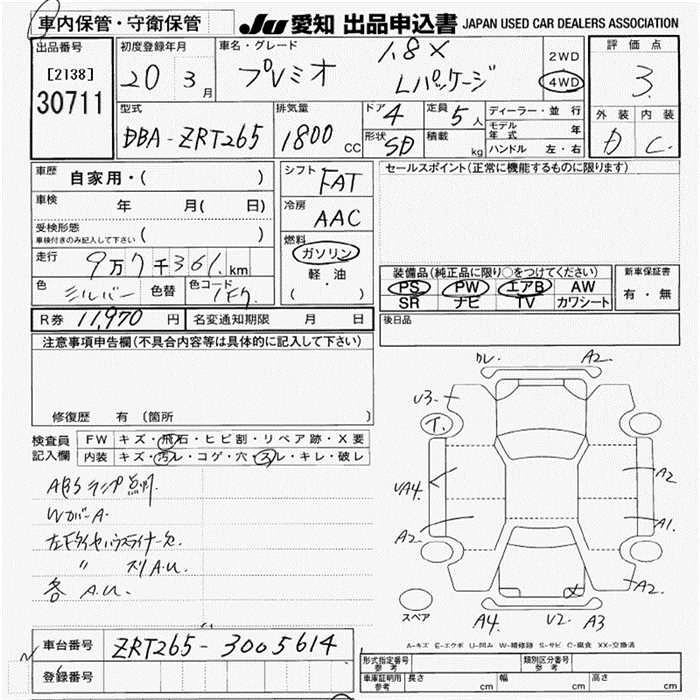 車内保管・守衛保管
JU 愛知 出品申込書 JAPAN USED CAR DEALERS ASSOCIATION
出品番号 初度登録年月 車名・グレード 評価点
[2138] 20 3月 プレミオ 1.8 X Lパッケージ 2WD 4WD 3.
30711
型式 排気量 ドア 4 定員 5人 ディーラー・並行 外装 内装
DBA-ZRT265 1800 CC 形状 SD 積載 kg モデル年式 年 D C.
ハンドル 左・右
車歴 自家用・( ) シフト FAT セールスポイント(正常に機能するものに限ります)
車検 年 月( 日) 冷房 AAC
受検形態 ( )
車検付きのみ記入して下さい
燃料 ガソリン 軽油 ( ・ )
走行 9万7千361km
色 シルバー 色替 色コード 1F7
装備品(純正品に限り○をつけてください) 新車保証書
PS PW エアB AW 有・無
SR ナビ TV カワシート
R券 11,970円 名変通知期限 月 日 後日品
注意事項申告欄(不具合内容等は具体的に記入して下さい)
修復歴 有 (箇所 )
検査員記入欄 FW キズ・飛石・ヒビ割・リペア跡・X要
内装 キズ・汚レ・コゲ・穴・スレ・キレ・破レ
ABSランプ点灯.
WカバーA.
左Fタイヤハウスライナー欠.
〃 ズリA.U.
各 A.U.
クレ. A2.
U3.
T.
UA4. A2
A2. A1.
A2.
A4. U2. A3
スペア
A-キズ E-エクボ U-凹み W-補修跡 S-サビ C-腐食 XX-交換済
車台番号 ZRT265-3005614
登録番号
形式指定番号 参考 類別区分番号 参考
車庫証明用 参考 長さ cm 幅 cm 高さ cm